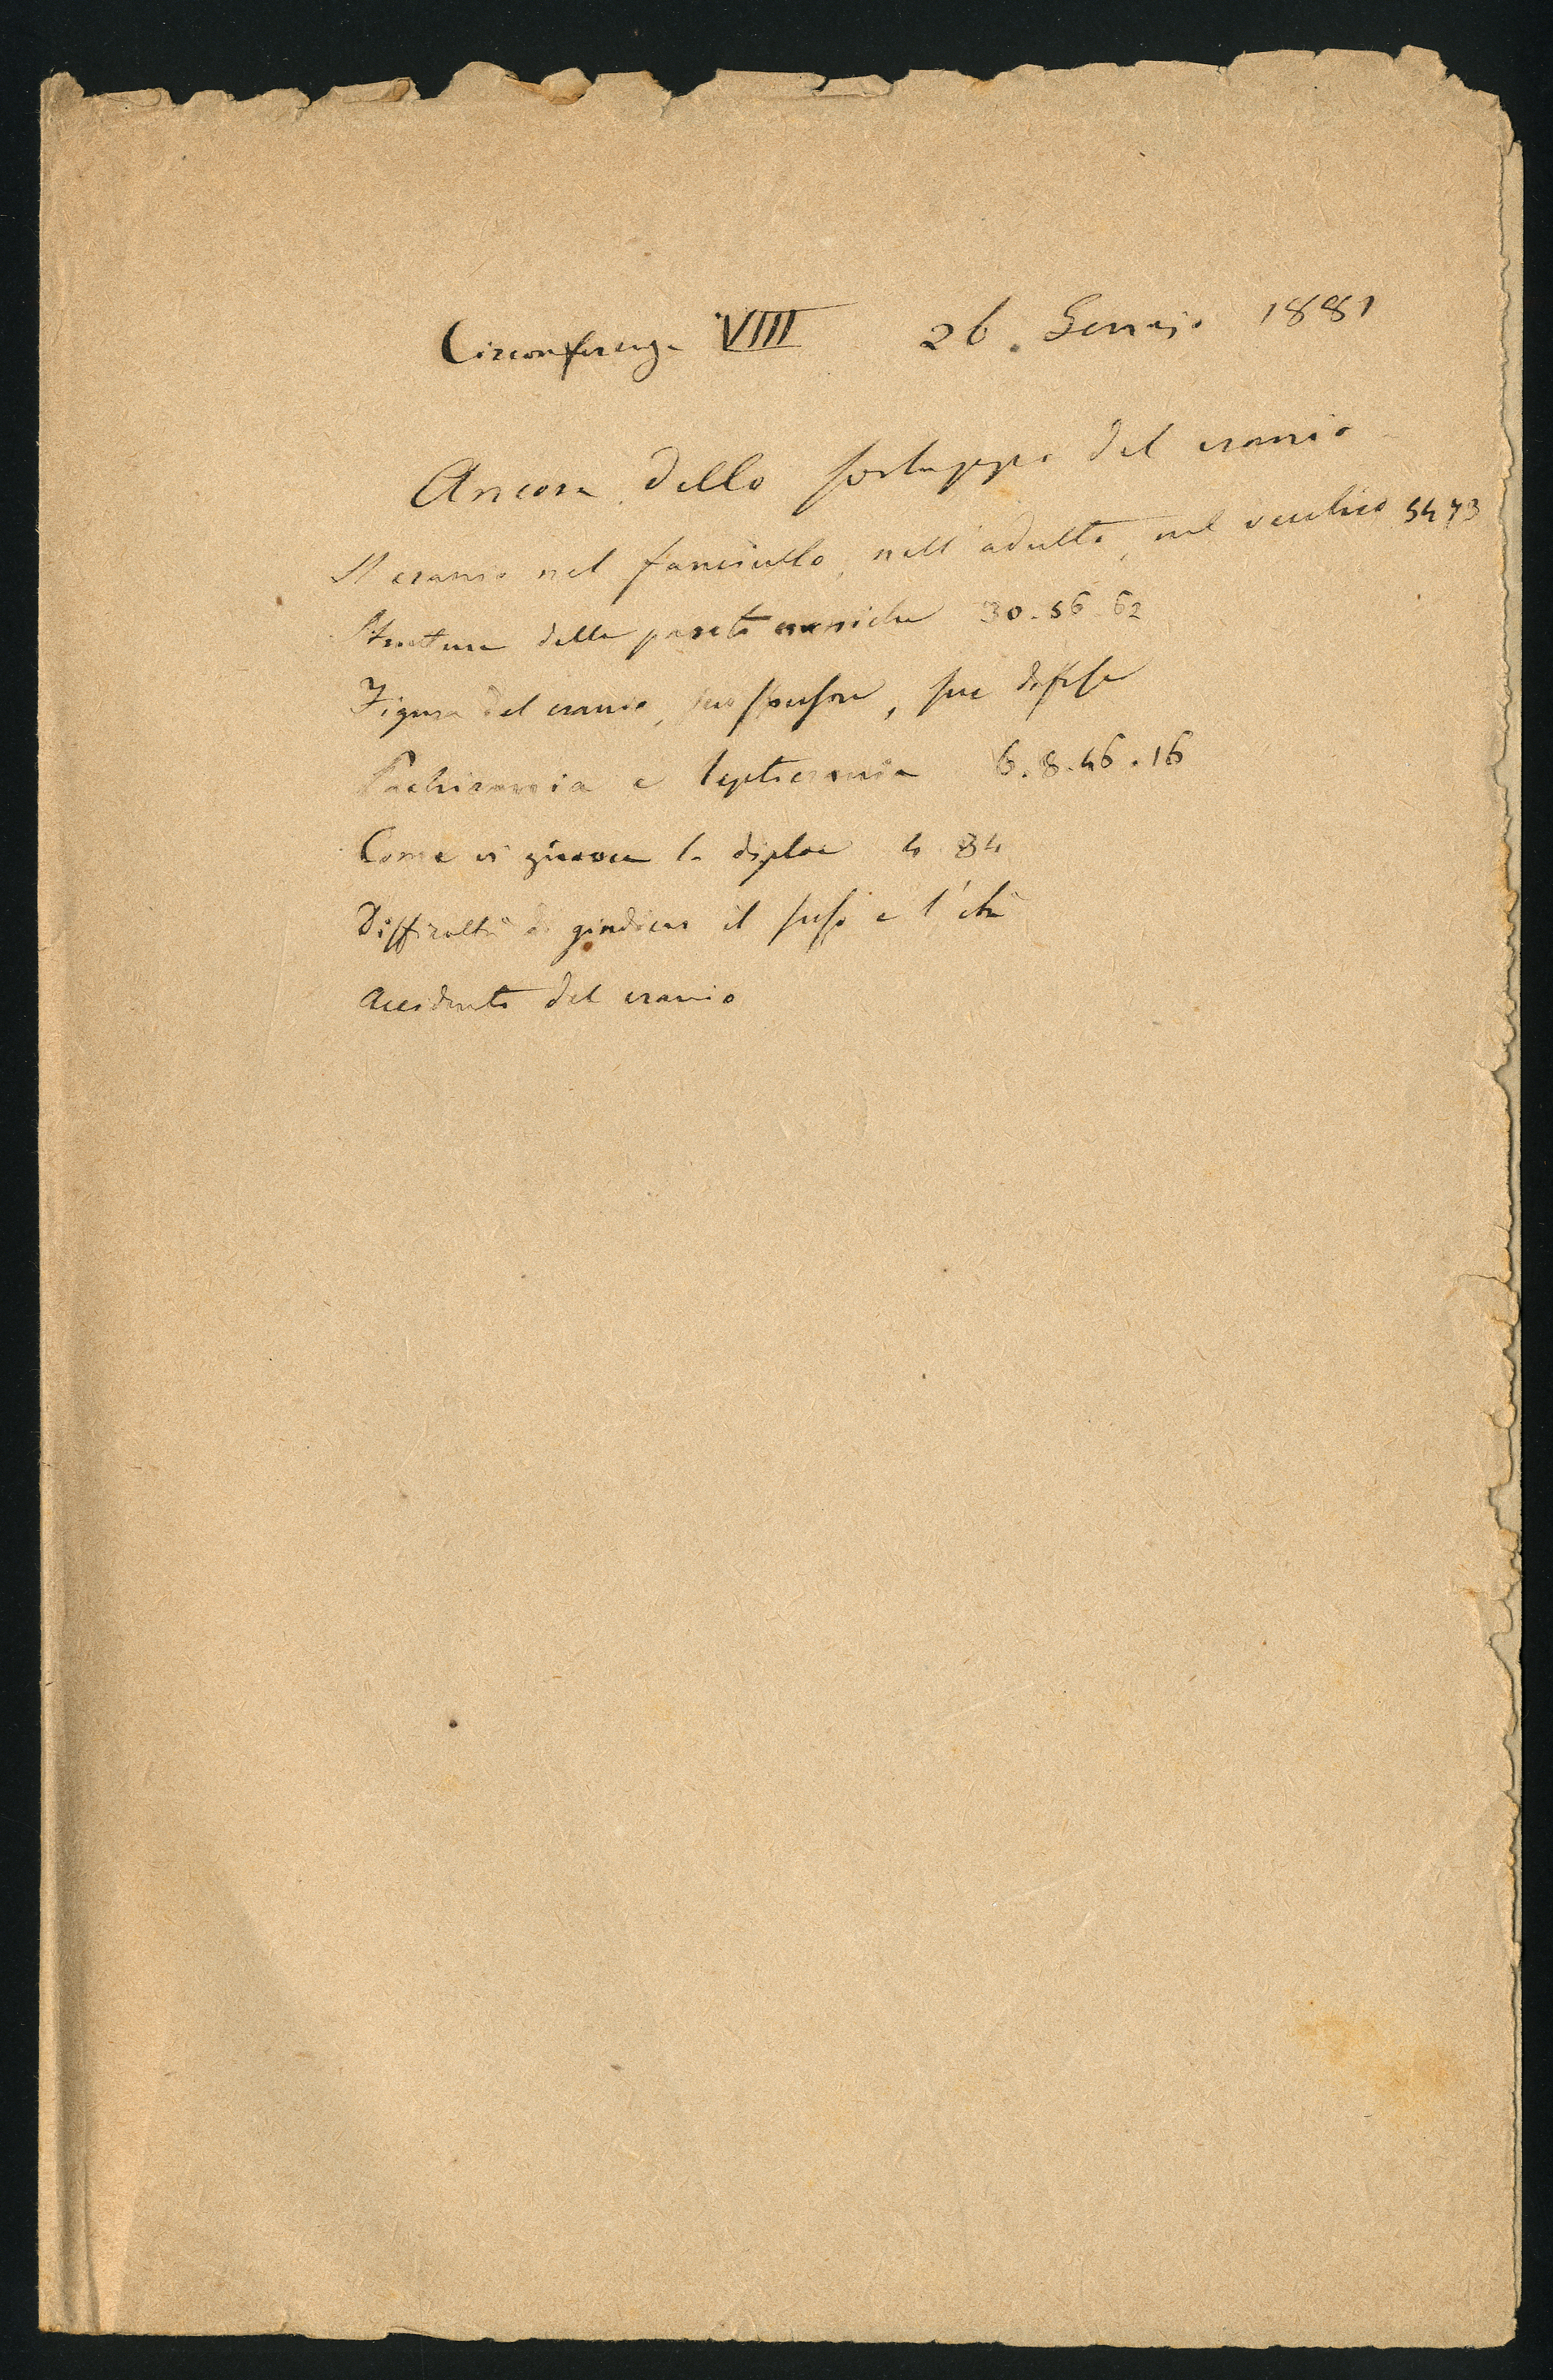 Circonferenza VIIII 26. Gennajo 1881
Ancora dello sviluppo del cranio
Il cranio nel fanciullo, nell'adulto, nel vecchio 54 73
Struttura delle pareti craniche 30. 56. 62
Figura del cranio, suo spessore, sue difese
Pachicrania e lepticrania 6. 8. 46. 16
Come vi giuoca la diploe 4 84
Difficoltà di giudicar il sesso e l'età
Accidenti del cranio